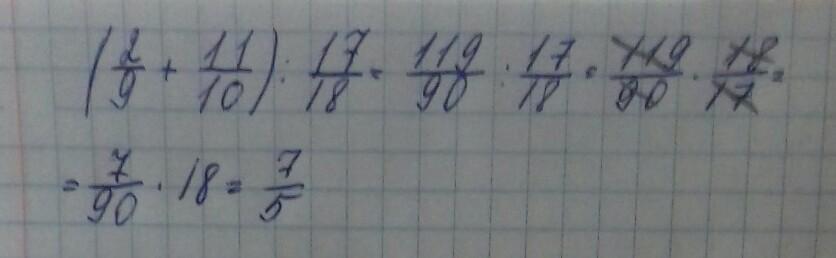 (2/9 + 11/10) : 17/18 = 119/90 : 17/18 = 119/90 · 18/17 =
= 7/90 · 18 = 7/5